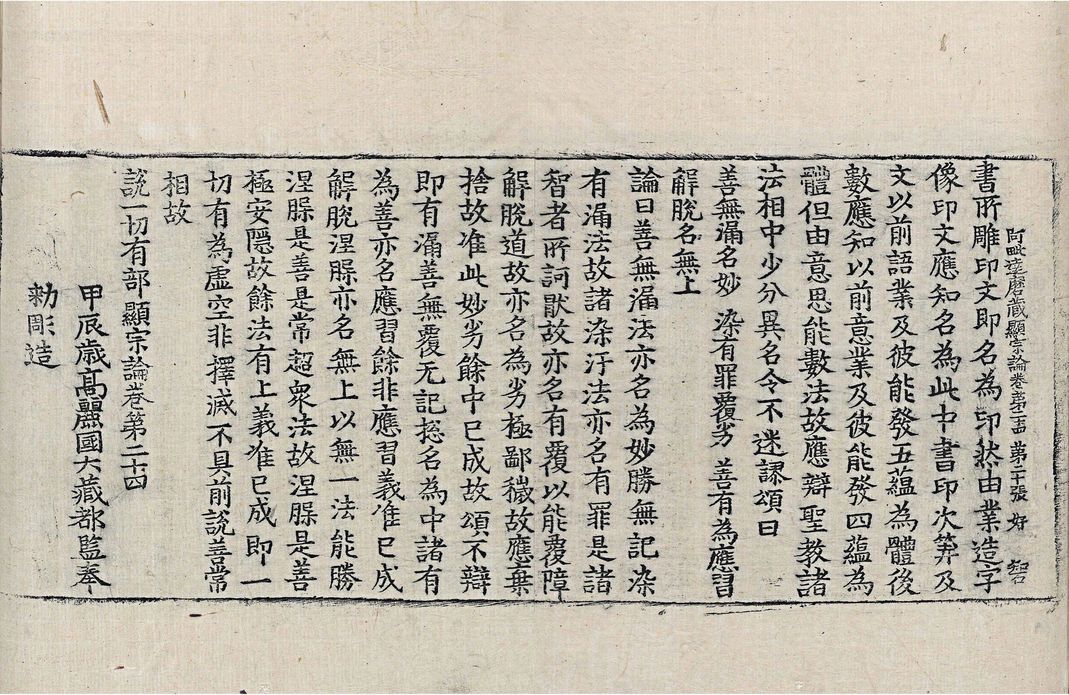 阿毗達磨藏顯宗論卷第二十四 第二十張 好
書所雕印文即名為印然由業造字
像印文應知名為此中書印次筭及
文以前語業及彼能發五蘊為體後
數應知以前意業及彼能發四蘊為
體但由意思能數法故應辯聖教諸
法相中少分異名令不迷謬頌曰
善無漏名妙 染有罪覆劣 善有為應習
解脫名無上
論曰善無漏法亦名為妙勝無記染
有漏法故諸染汙法亦名有罪是諸
智者所訶猒故亦名有覆以能覆障
解脫道故亦名為劣極鄙穢故應棄
捨故准此妙劣餘中已成故頌不辯
即有漏善無覆无記捴名為中諸有
為善亦名應習餘非應習義准已成
解脫涅槃亦名無上以無一法能勝
涅槃是善是常超衆法故涅槃是善
極安隱故餘法有上義准已成即一
切有為虛空非擇滅不具前說善常
相故
說一切有部顯宗論卷第二十四
甲辰歲高麗國大藏都監奉
勅彫造